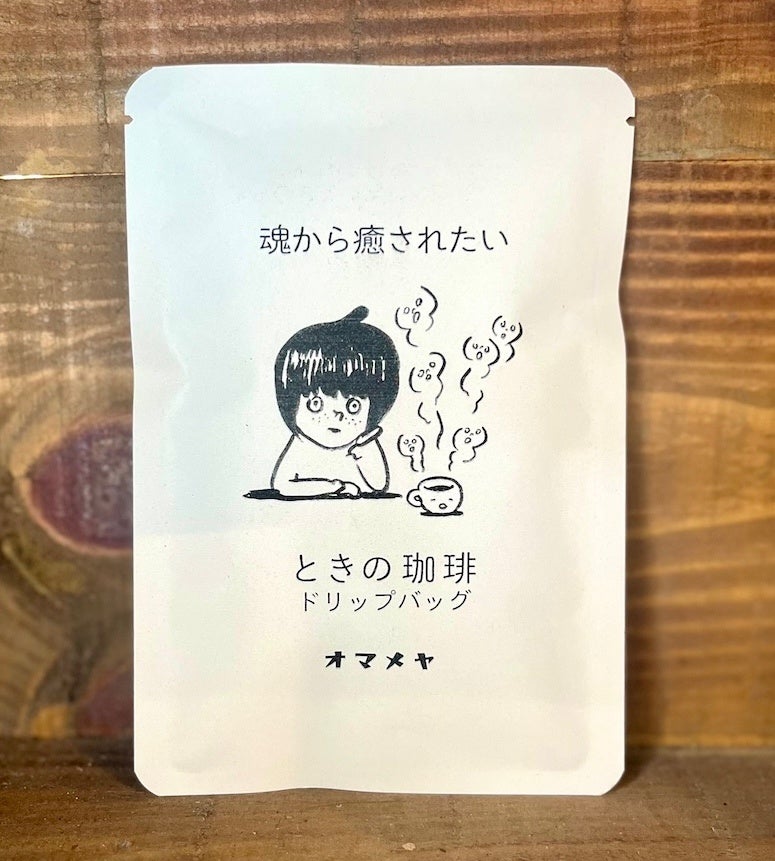 魂から癒されたい
ときの珈琲
ドリップバッグ
オマメヤ